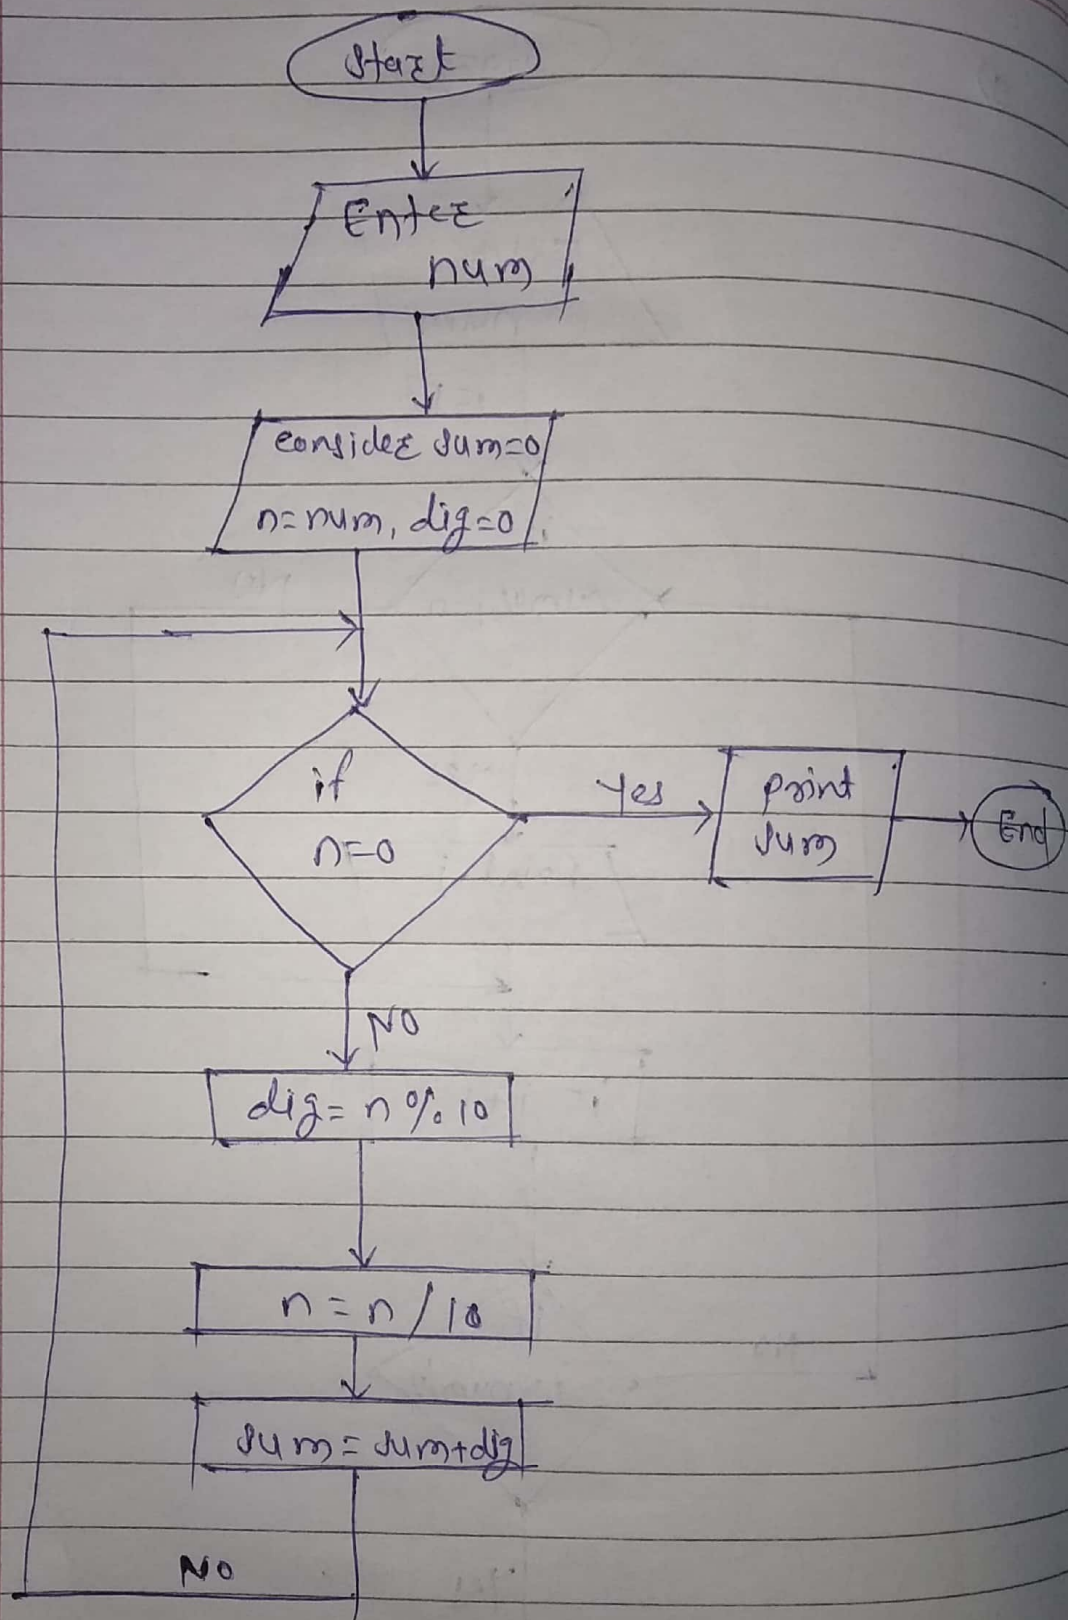 Start
Enter
num
consider sum=0
n=num, dig=0
if
n=0
Yes
print
sum
End
NO
dig=n%10
n=n/10
sum=sum+dig
NO